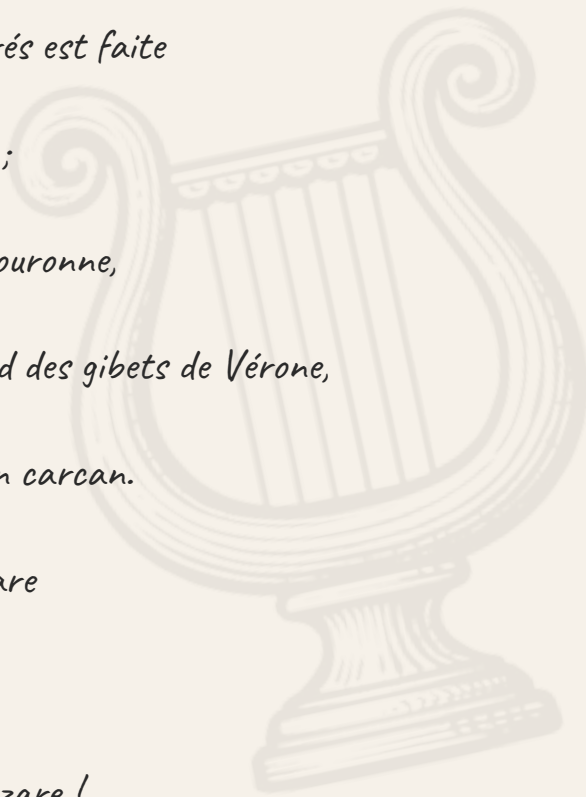 rés est faite
;
ouronne,
d des gibets de Vérone,
n carcan.
are
zare !